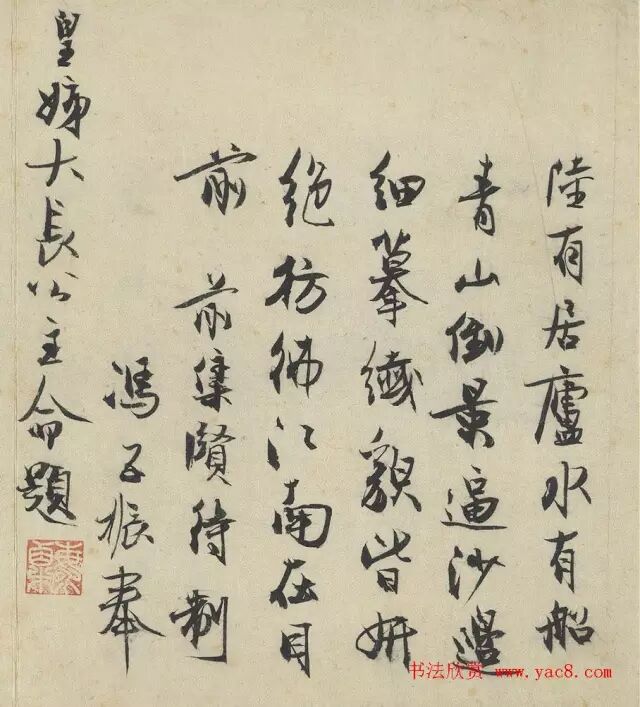 陸有居廬水有船
青山倒景逼沙邊
細摹纖貌皆妍
絕彷彿江南在目
前 前集賢待制
馮子振奉
皇姊大長公主命題
书法欣赏 www.yac8.com